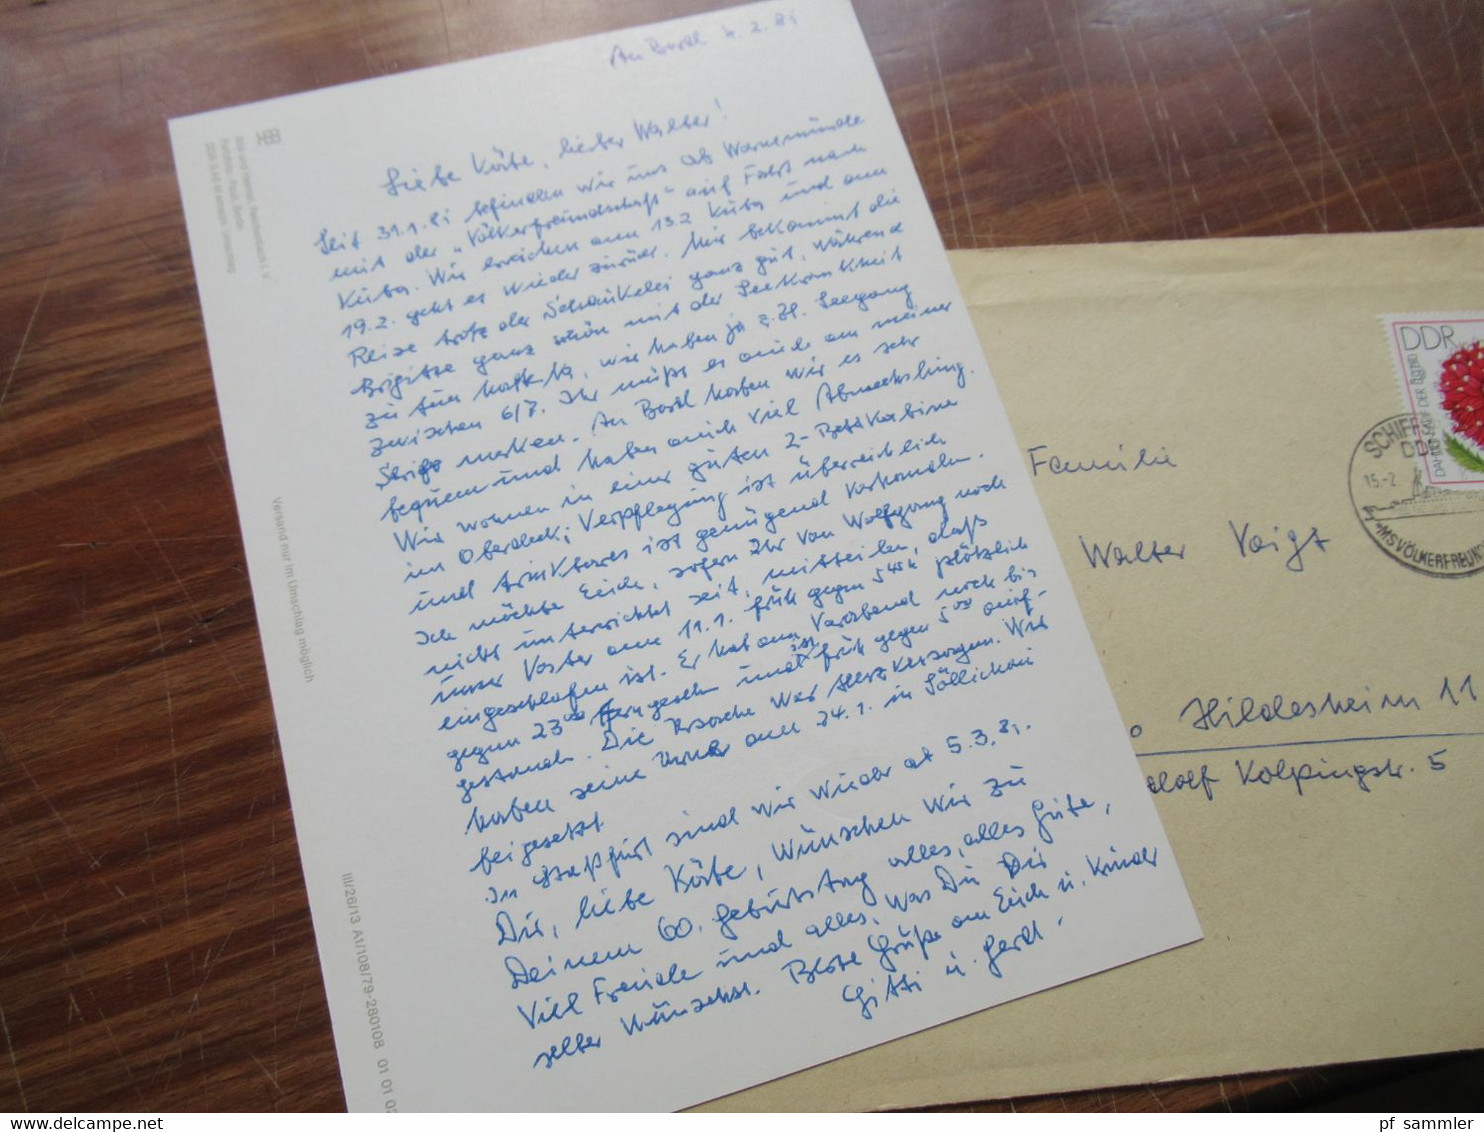 An Bord 4.2.81
Liebe Käte, lieber Walter!
Seit 31.1.81 befinden wir uns ab Warnemünde
mit der „Völkerfreundschaft" auf Fahrt nach
Kuba. Wir erreichen am 13.2 Kuba und am
19.2. geht es wieder zurück. Mir bekommt die
Reise trotz der Schaukelei ganz gut, während
Brigitte ganz schön mit der Seekrankheit
zu tun hatte, wir haben ja z. Zt. Seegang
zwischen 6/7. Ihr müßt es auch an meiner
Schrift merken. An Bord haben wir es sehr
bequem und haben auch viel Abwechslung.
Wir wohnen in einer guten 2-Bettkabine
im Oberdeck; Verpflegung ist überreichlich
und trinkbares ist genügend vorhanden.
Ich möchte Euch, sofern Ihr von Wolfgang noch
nicht unterrichtet seit, mitteilen, daß
unser Vater am 11.1. früh gegen 5 45 h plötzlich
eingeschlafen ist. Er hat am Vorabend noch bis
gegen 23 00 ferngesehn und ist früh gegen 5 00 auf-
gestanden. Die Ursache war Herzversagen. Wir
haben seine Urne am 24.1. in Söllichau
beigesetzt.
In Staßfurt sind wir wieder ab 5.3.81.
Dir, liebe Käte, wünschen wir zu
Deinem 60. Geburtstag alles, alles Gute,
viel Freude und alles, was Du Dir
selber wünschst. Beste Grüße an Euch u. Kinder
Gitti u. Gerd.
Versand nur im Umschlag möglich
III/26/13 A1/108/79-280108 01 01 0
DDR
SCHIFF
15.-2
MS VÖLKERFREUND
Familie
Walter Voigt
o Hildesheim 11
dolf Kolpingstr. 5
pf sammler